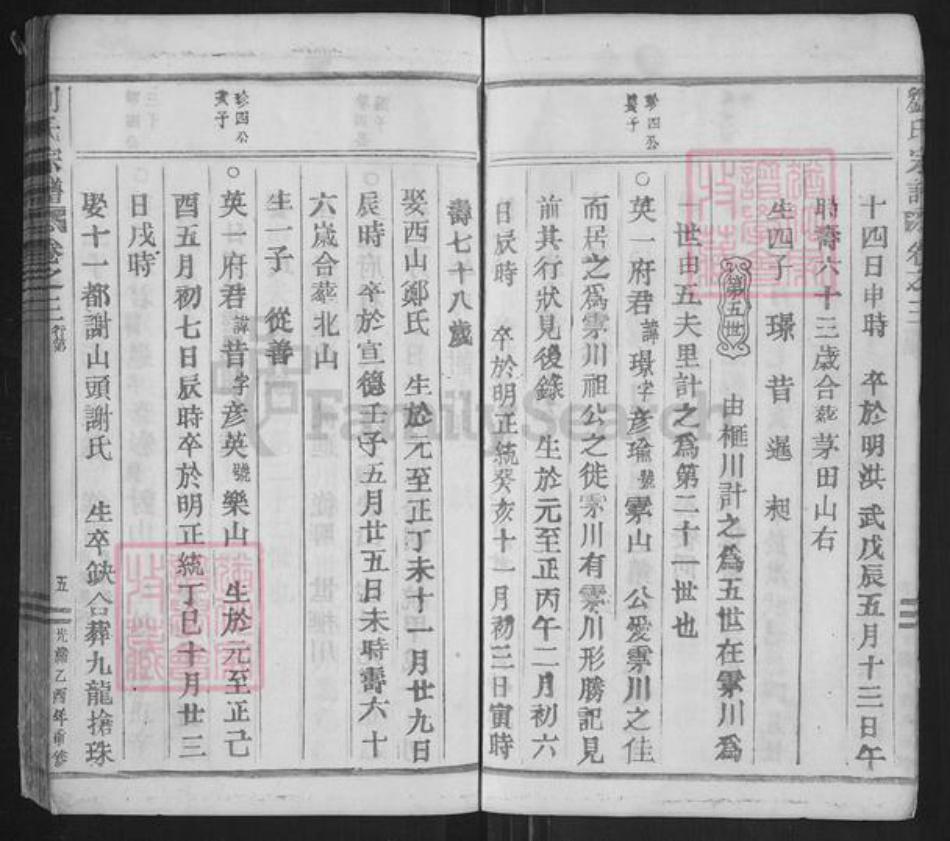 十四日申時　卒於明洪武戊辰五月十三日午
時壽六十三歲合葬茅田山右
生四子　璟　昔　暹　昶
第五世　由榧川計之為五世在霏川為
一世由五夫里計之為第二十一世也
珍四公
長子
○英一府君諱璟字彥瑜號霏山　公愛霏川之佳
而居之為霏川祖公之徙霏川有霏川形勝記見
前其行狀見後錄　生於元至正丙午二月初六
日辰時　卒於明正統癸亥十一月初三日寅時
壽七十八歲
娶西山鄭氏　生於元至正丁未十一月廿九日
辰時卒於宣德壬子五月廿五日未時壽六十
六歲合葬北山
生一子　從善
珍四公
次子
○英一府君諱昔字彥英號樂山　生於元至正己
酉五月初七日辰時卒於明正統丁巳十月廿三
日戌時
娶十一都謝山頭謝氏　生卒缺合葬九龍搶珠
劉氏宗譜　卷之三　行第
五　光緒乙酉年重修
FamilySearch